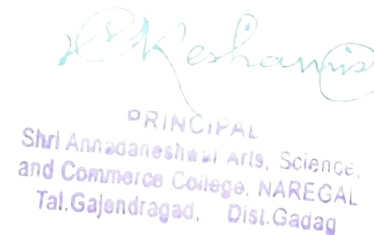 PRINCIPAL
Shri Annadaneshwar Arts, Science,
and Commerce College, NAREGAL
Tal.Gajendragad, Dist.Gadag